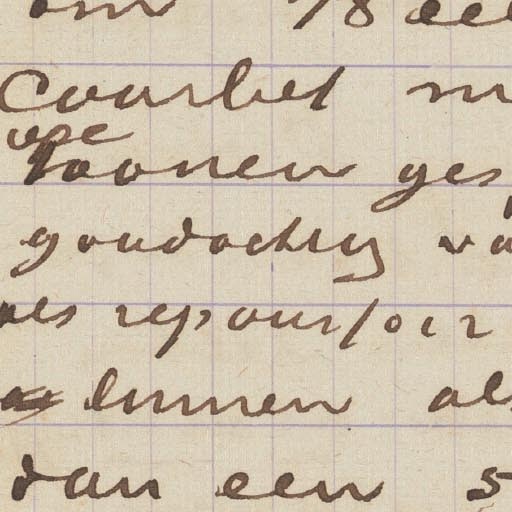 om 18 dec
Courbet m
toonen ges
goudachtig va
als repoussoir
binnen als
dan een s